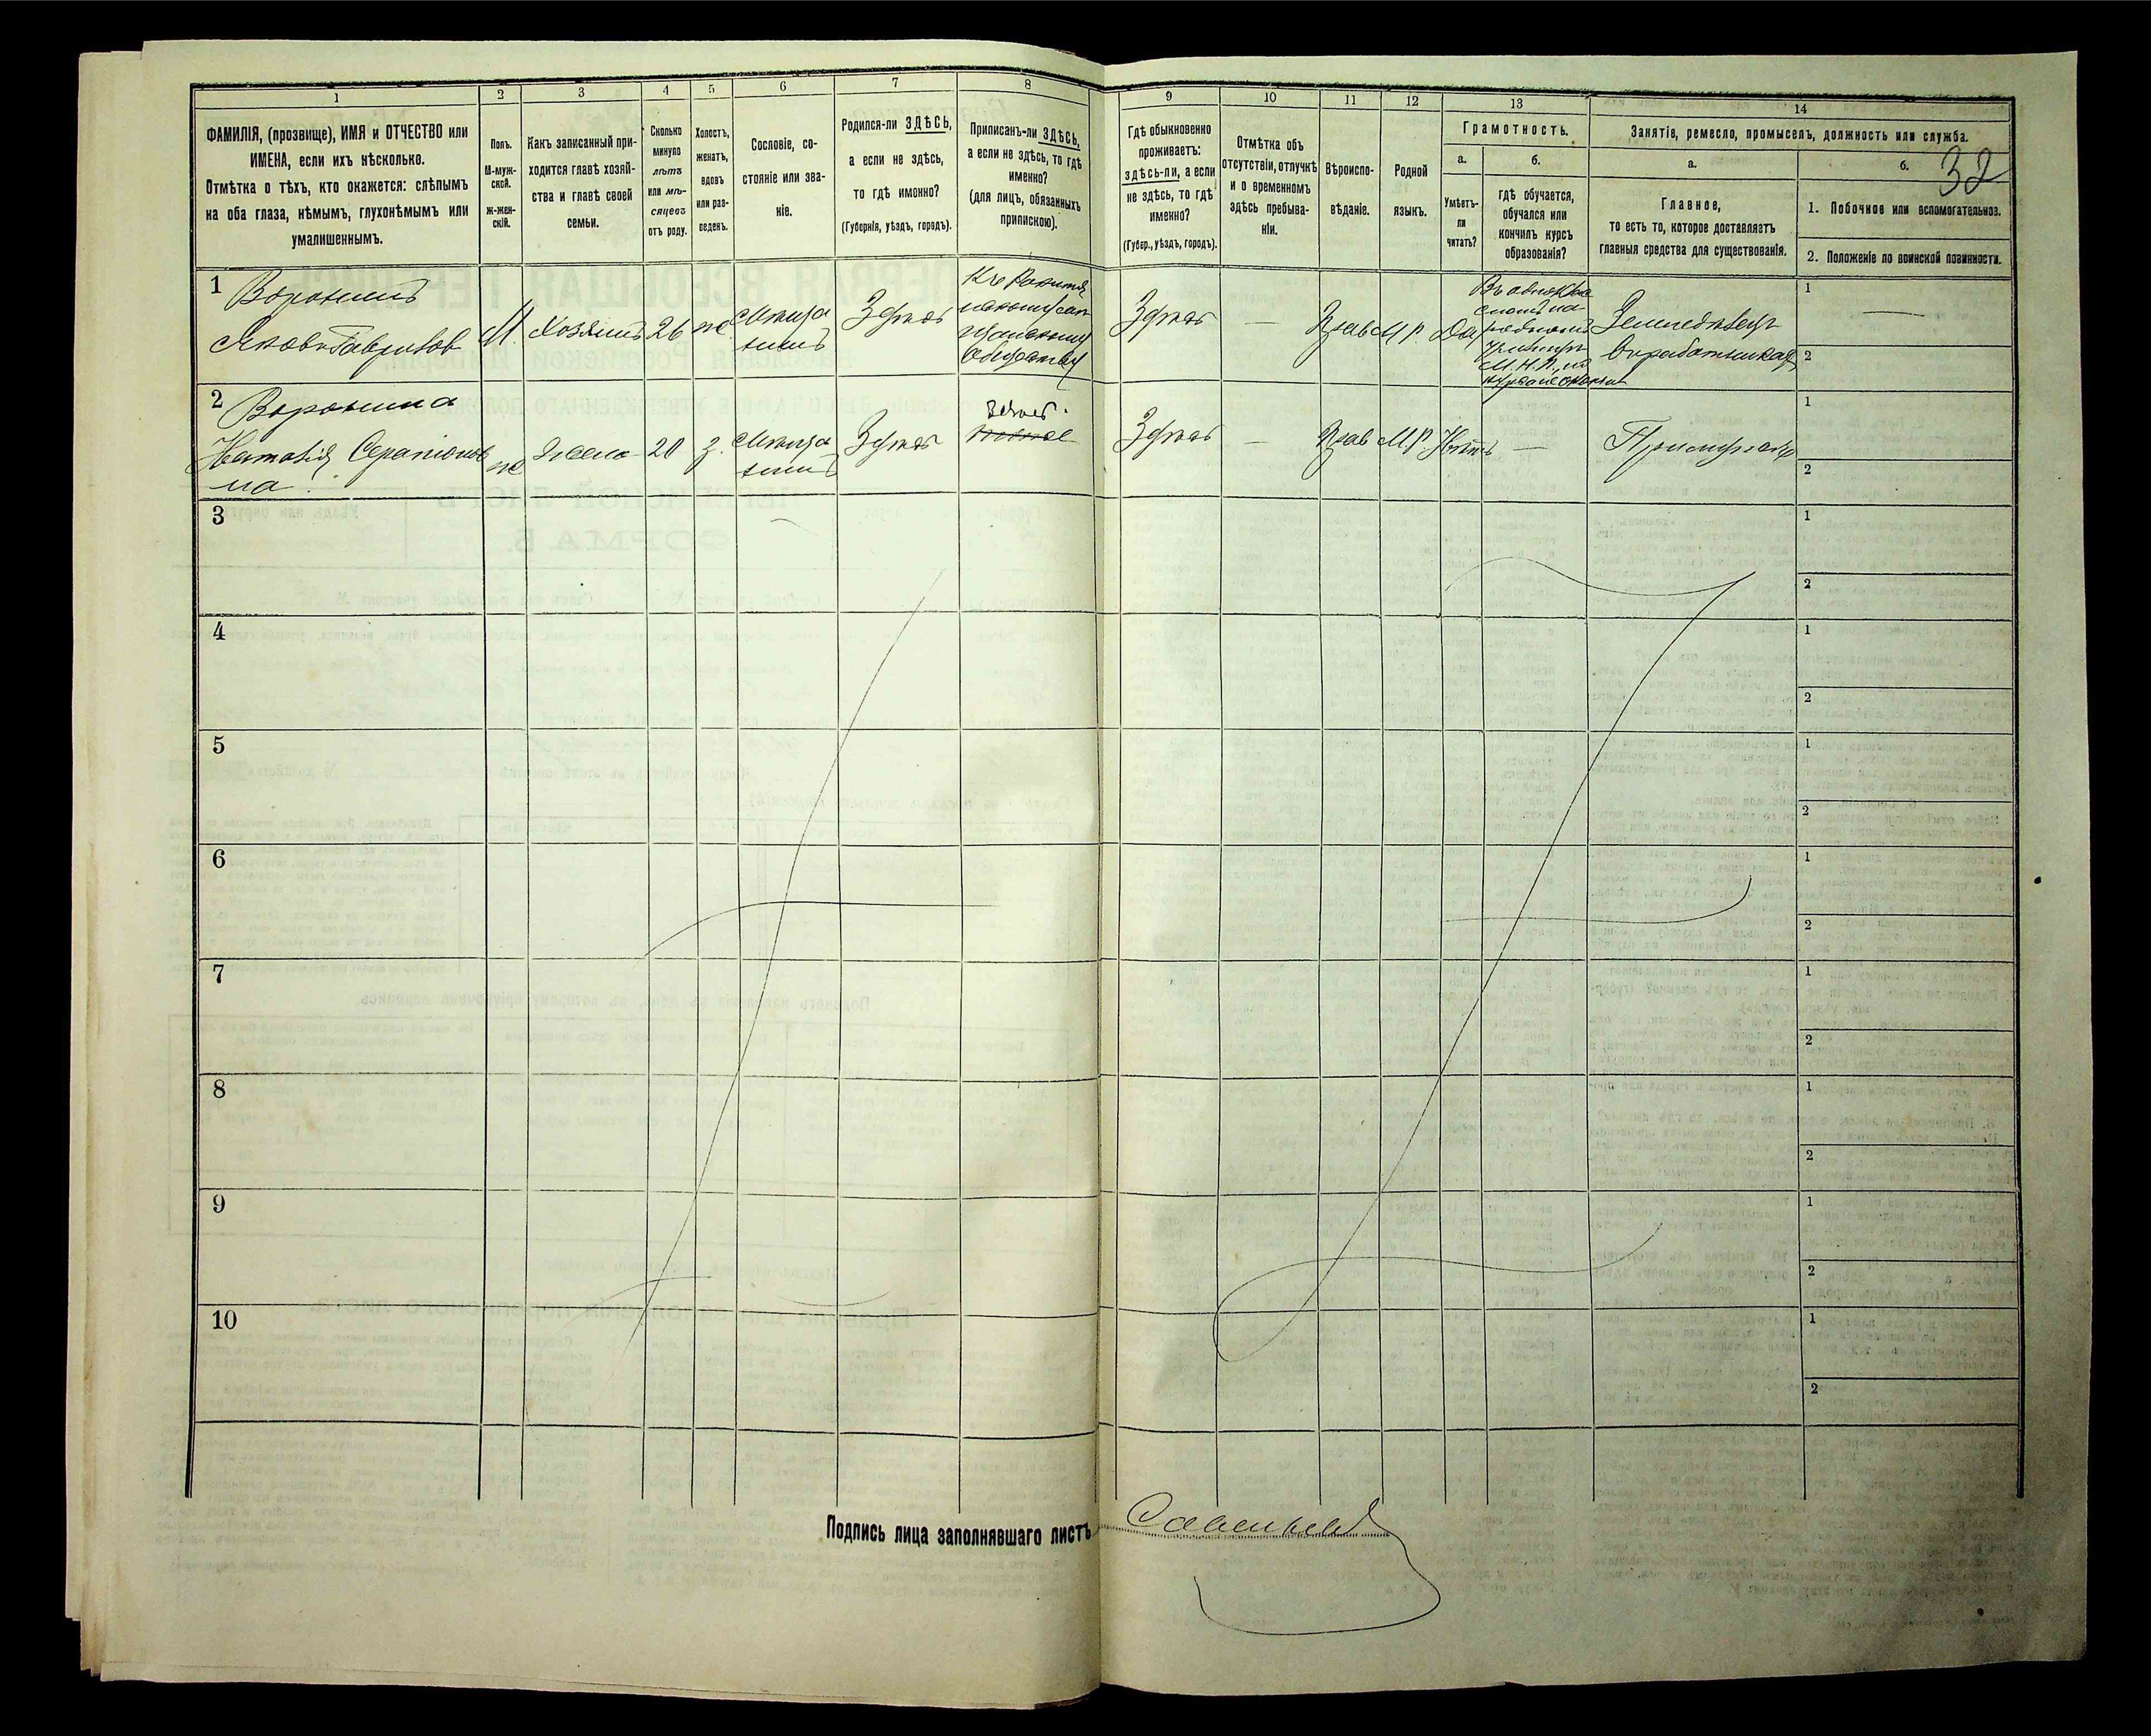 1
2
3
4
5
6
7
8
9
10
11
12
13
14
ФАМИЛІЯ, (прозвище), ИМЯ и ОТЧЕСТВО или
ИМЕНА, если ихъ нѣсколько.
Отмѣтка о тѣхъ, кто окажется: слѣпымъ
на оба глаза, нѣмымъ, глухонѣмымъ или
умалишеннымъ.
Полъ.
М-муж-
ской.
ж-жен-
скій.
Какъ записанный при-
ходится главѣ хозяй-
ства и главѣ своей
семьи.
Сколько
минуло
лѣтъ
или мѣ-
сяцевъ
отъ роду.
Холостъ,
женатъ,
вдовъ
или раз-
веденъ.
Сословіе, со-
стояніе или зва-
ніе.
Родился-ли ЗДѢСЬ,
а если не здѣсь,
то гдѣ именно?
(Губернія, уѣздъ, городъ).
Приписанъ-ли ЗДѢСЬ,
а если не здѣсь, то гдѣ
именно?
(для лицъ, обязанныхъ
припискою).
Гдѣ обыкновенно
проживаетъ:
здѣсь-ли, а если
не здѣсь, то гдѣ
именно?
(Губер., уѣздъ, городъ).
Отмѣтка объ
отсутствіи, отлучкѣ
и о временномъ
здѣсь пребыва-
ніи.
Вѣроиспо-
вѣданіе.
Родной
языкъ.
Грамотность.
а.
б.
Умѣетъ-
ли
читать?
гдѣ обучается,
обучался или
кончилъ курсъ
образованія?
Занятіе, ремесло, промыселъ, должность или служба.
а.
б.
32
Главное,
то есть то, которое доставляетъ
главныя средства для существованія.
1. Побочное или вспомогательное.
2. Положеніе по воинской повинности.
1
Воронинъ
Яковъ Гавриловъ
М.
Хозяинъ
26
же
Здѣсь
обществу
Здѣсь
Прав
М.Р.
Да
М.Н.П.
Земледѣлецъ
1
2
2
Воронина
Наталія Серапіонов
на
же
Жена
20
З.
Здѣсь
Здѣсь
Прав
М.Р.
Нѣтъ
1
2
3
1
2
4
1
2
5
1
2
6
1
2
7
1
2
8
1
2
9
1
2
10
1
2
Подпись лица заполнявшаго листъ